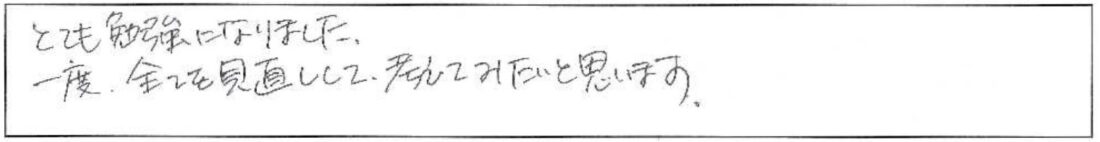 とても勉強になりました。
一度、全てを見直しして、考えてみたいと思います。